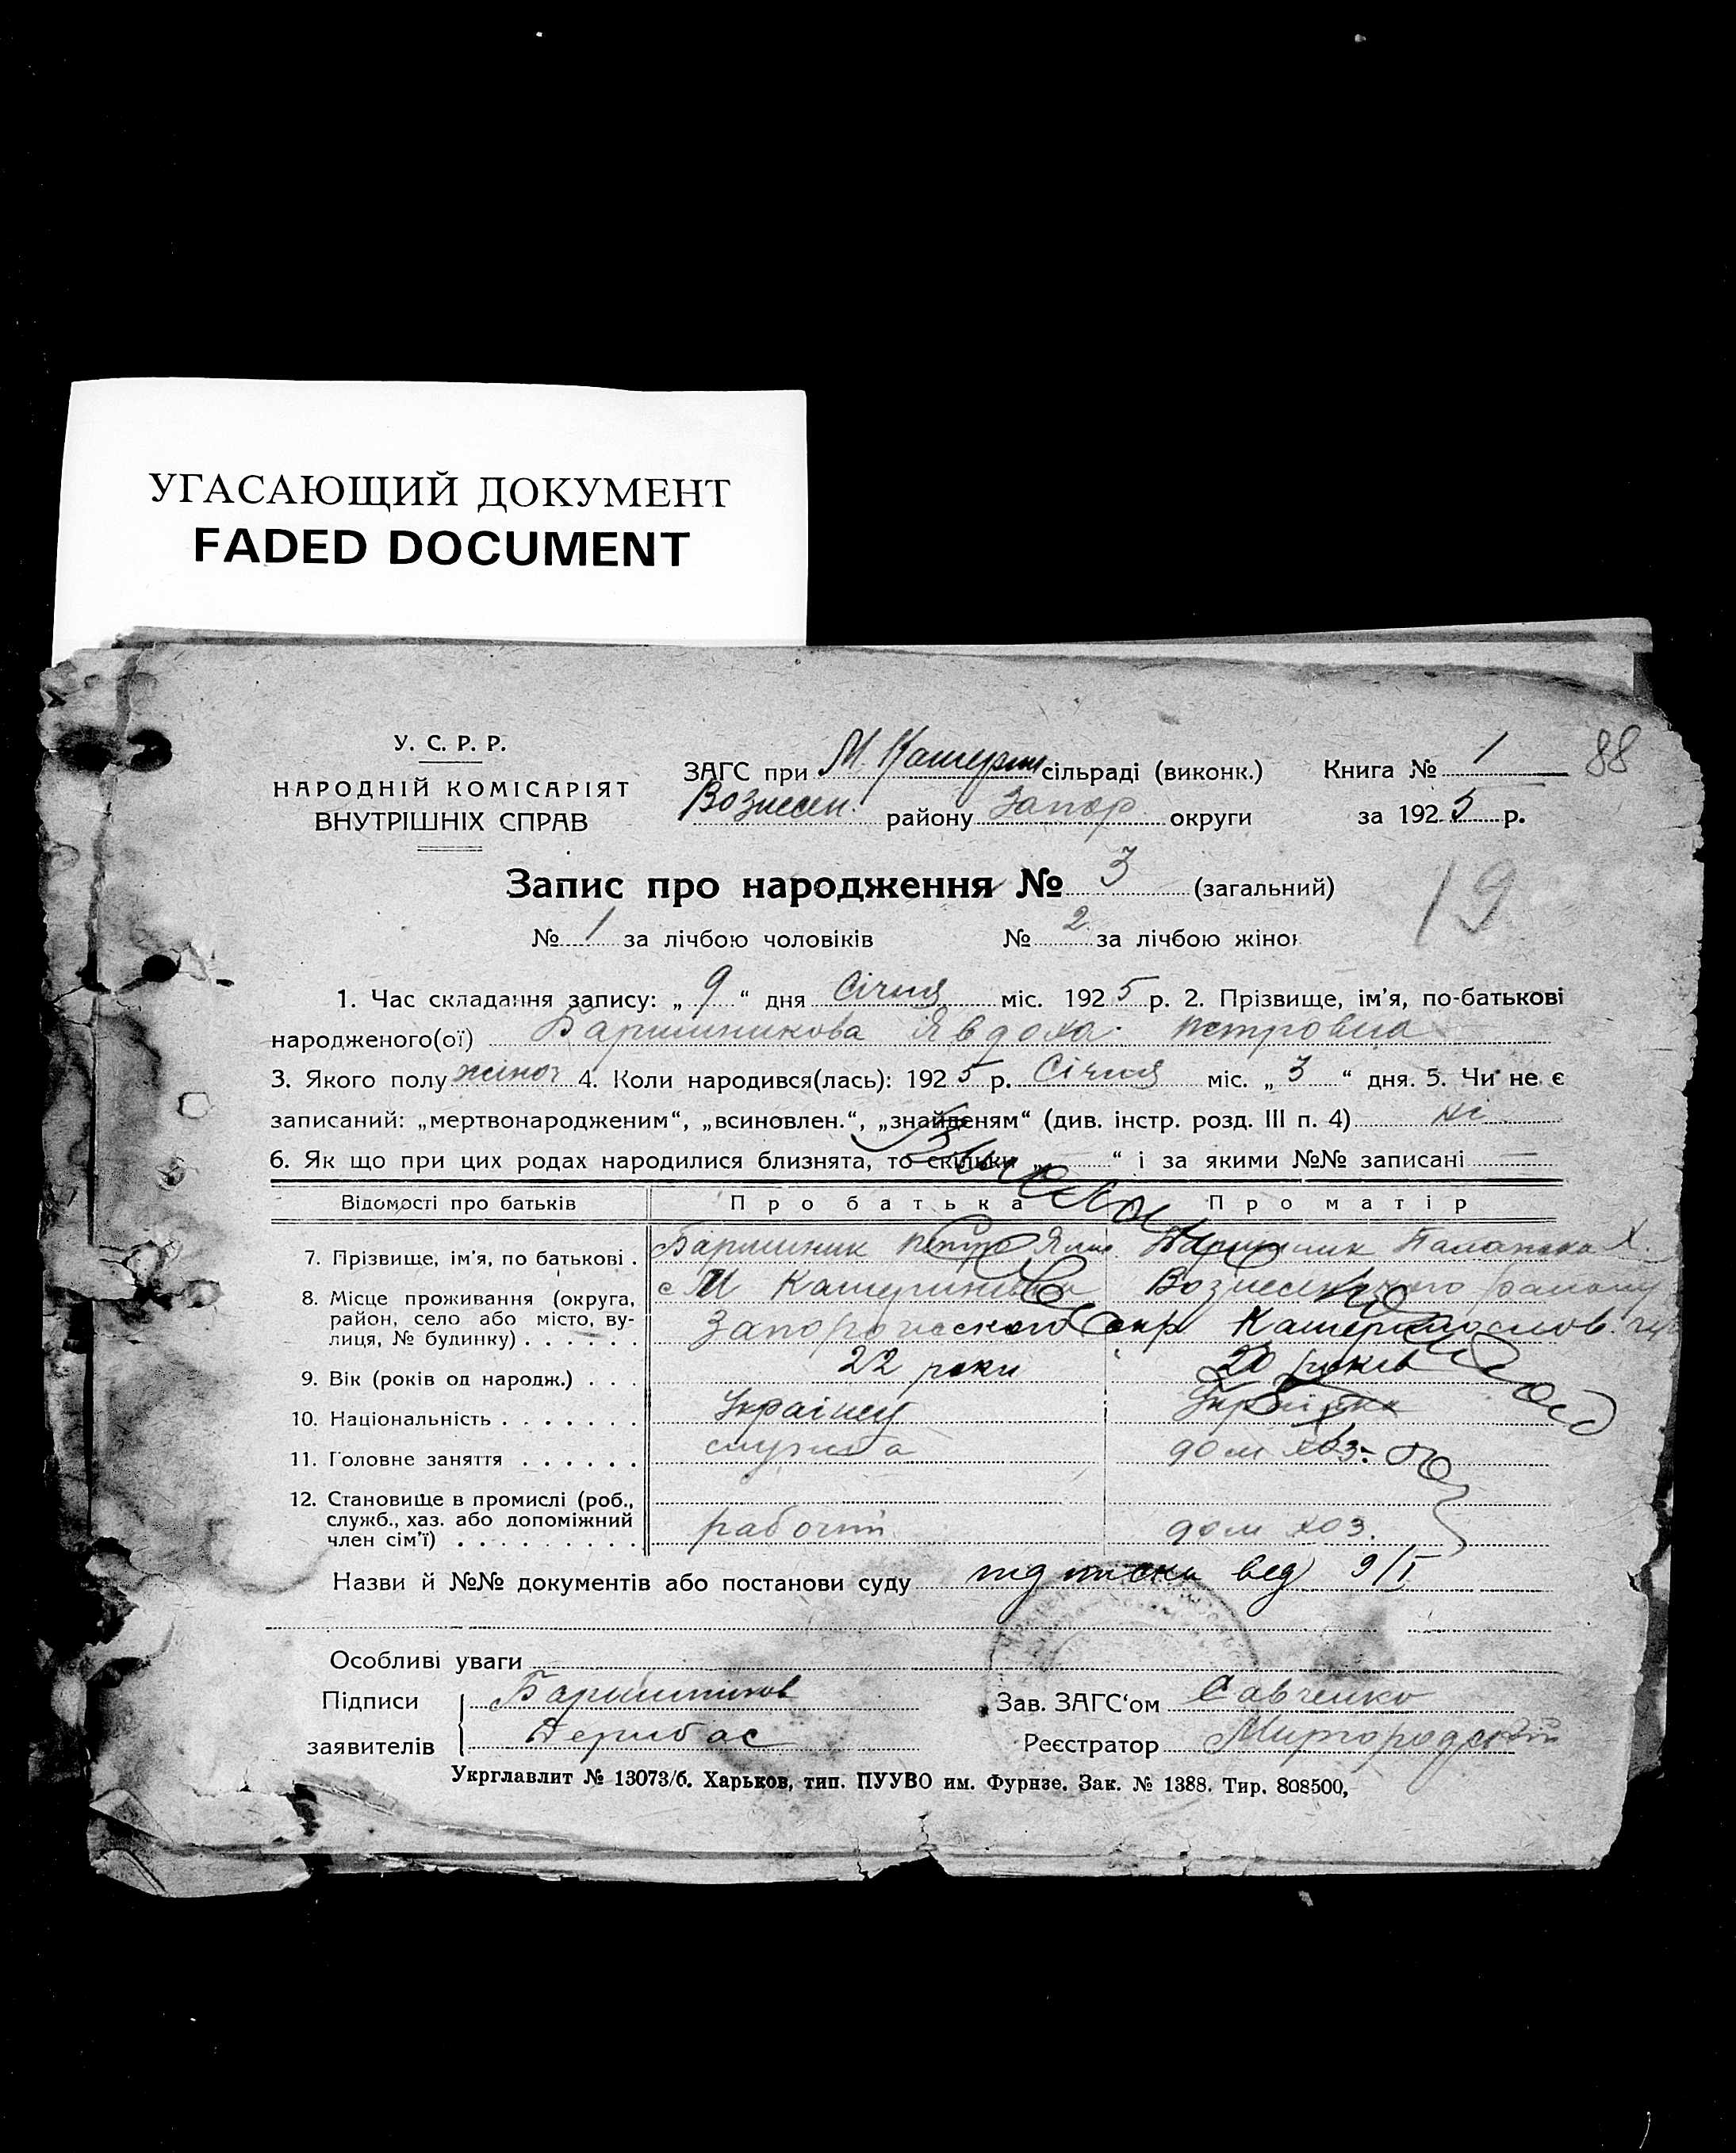 УГАСАЮЩИЙ ДОКУМЕНТ
FADED DOCUMENT
88
У. С. Р. Р.
НАРОДНІЙ КОМІСАРІЯТ
ВНУТРІШНІХ СПРАВ
ЗАГС при М. Катерин сільраді (виконк.) Книга № 1
Вознесен. району Запор округи за 1925 р.
Запис про народження № 3 (загальний)
19
№ 1 за лічбою чоловіків № 2 за лічбою жінок
1. Час складання запису: „ 9 “ дня Січня міс. 1925 р. 2. Прізвище, ім'я, по-батькові
народженого(ої) Баришникова Явдоха Петровна
3. Якого полу жіноч 4. Коли народився(лась): 1925 р. Січня міс. „ 3 “ дня. 5. Чи не є
записаний: „мертвонародженим“, „всиновлен.“, „знайденям“ (див. інстр. розд. III п. 4) ні
6. Як що при цих родах народилися близнята, то скільки „ — “ і за якими №№ записані —
Відомості про батьків Про батька Про матір
7. Прізвище, ім'я, по батькові . Баришник Петро Баришник Х.
8. Місце проживання (округа, с М Катеринівка Вознесенського району
район, село або місто, ву-
лиця, № будинку) . . . . . . Запорожского окр Катеринослов.
9. Вік (років од народж.) . . . 22 роки 20 років
10. Національність . . . . . . . Україн Українка
11. Головне заняття . . . . . . служба дом хоз.
12. Становище в промислі (роб.,
служб., хаз. або допоміжний
член сім'ї) . . . . . . . . . рабочий дом хоз.
Назви й №№ документів або постанови суду 9/I
Особливі уваги
Підписи Баришников Зав. ЗАГС‘ом Савченко
заявителів Дерибас Реєстратор Миргородский
Укрглавлит № 13073/6. Харьков, тип. ПУУВО им. Фурнзе. Зак. № 1388. Тир. 808500,